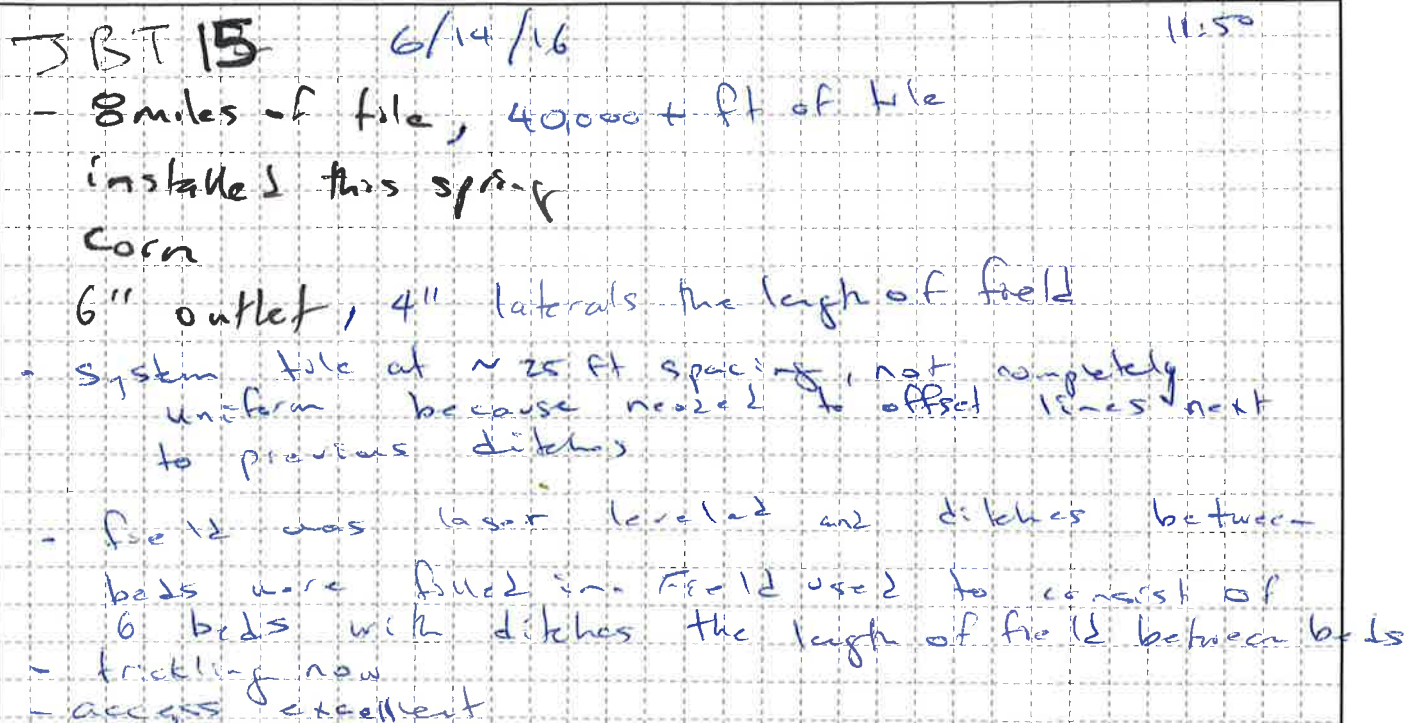 JBT 15 6/14/16 11:50
- 8 miles of tile, 40,000 + ft of tile
installed this spring
Corn
6" outlet, 4" laterals the length of field
- system tile at ~ 25 ft spacing, not completely
uniform because needed to offset lines next
to previous ditches
- field was laser leveled and ditches between
beds were filled in. Field used to consist of
6 beds with ditches the length of field between beds
- trickling now
- access excellent